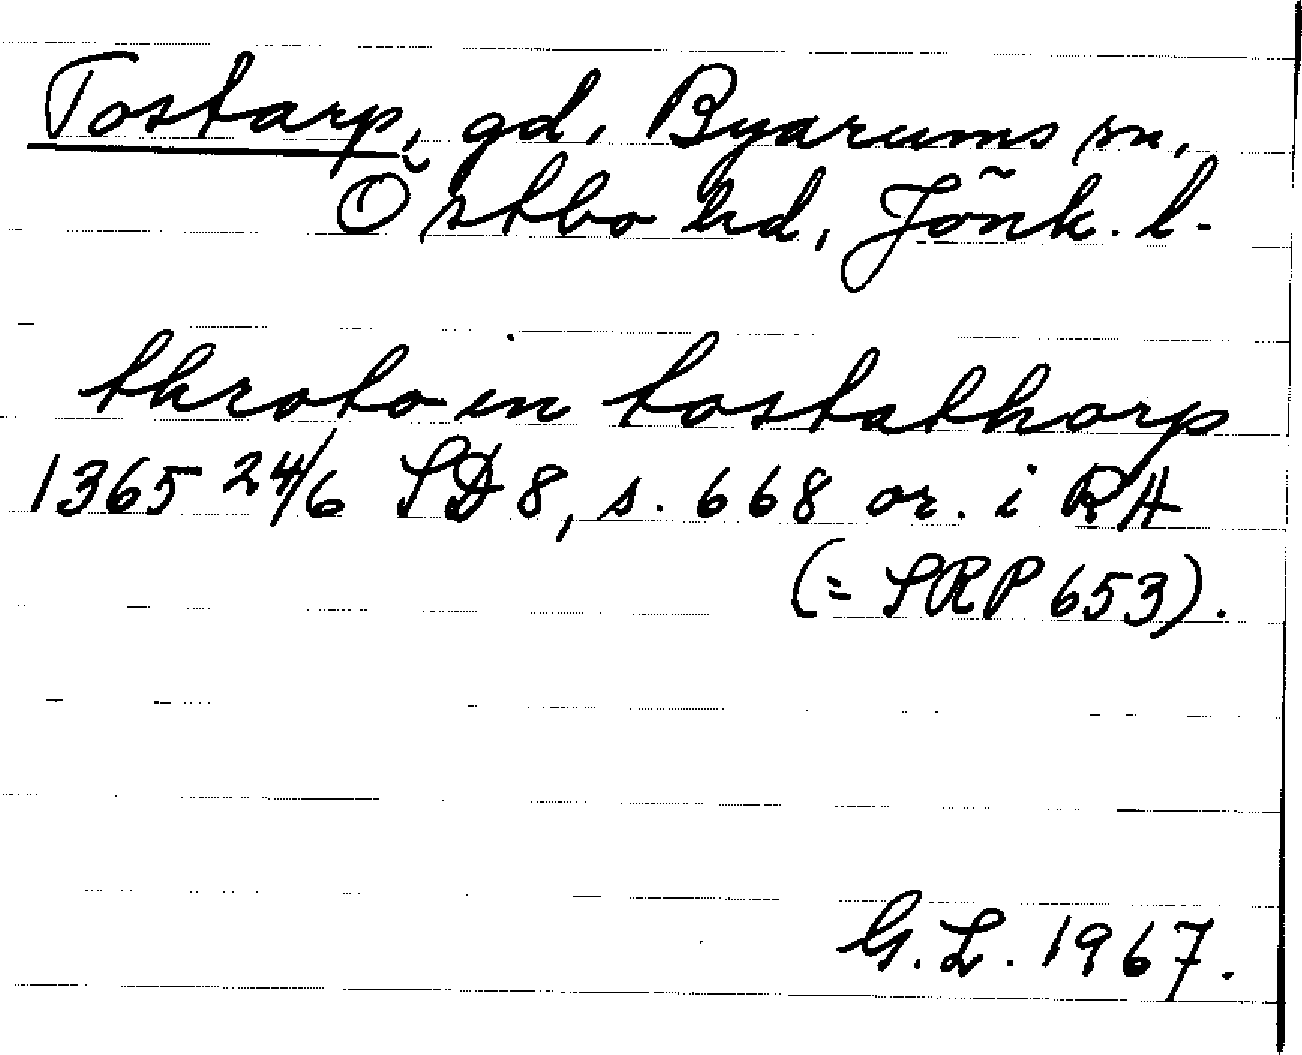 Tostarp, gd, Byarums sn,
Östbo hd, Jönk. l.
throto in tostathorp
1365 24/6 SD 8, s. 668 or. i RA
(= SRP 653).
G. L. 1967.